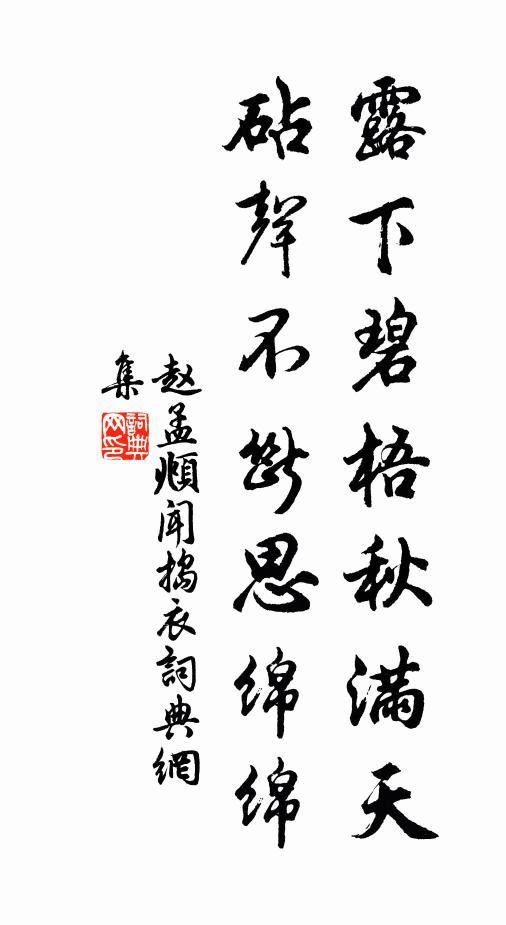 露下碧梧秋满天
砧聲不斷思绵绵
赵孟頫闻捣衣詞典網
集
詞典
网印